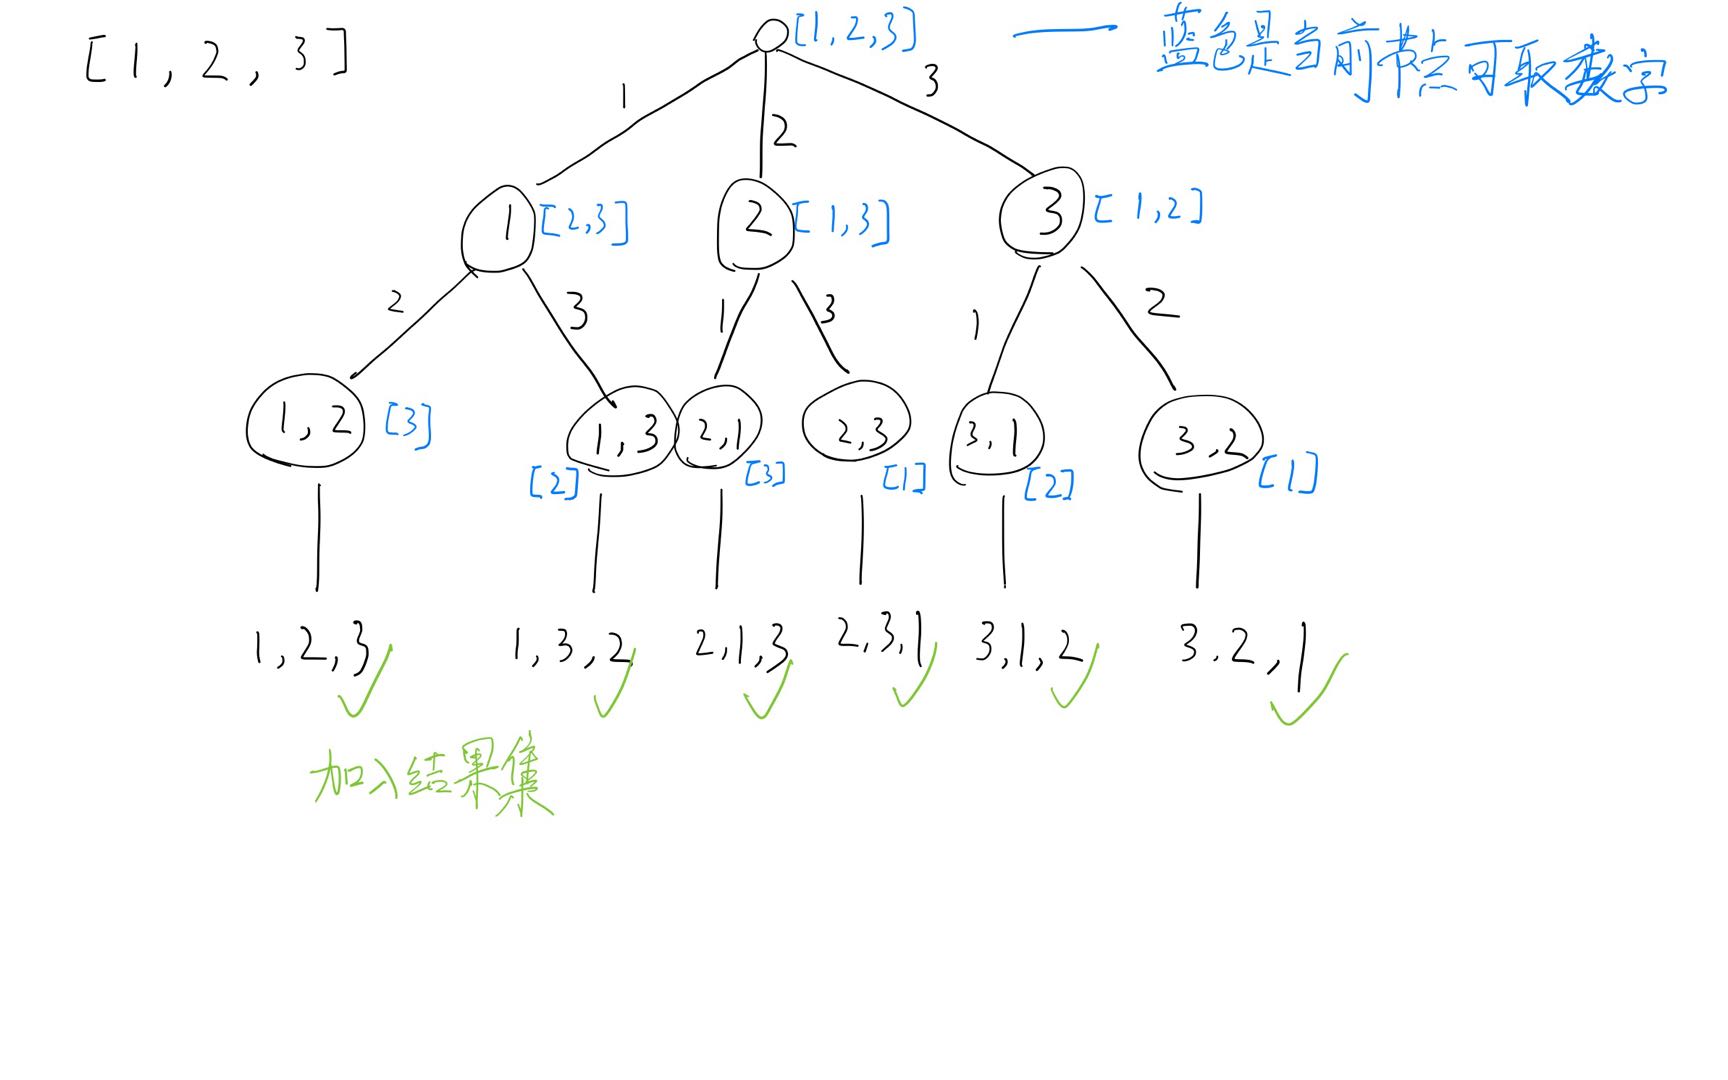 [1, 2, 3]
[1,2,3]
蓝色是当前节点可取数字
1
2
3
1 [2,3]
2 [1,3]
3 [1,2]
2
3
1
3
1
2
1,2 [3]
1,3 [2]
2,1 [3]
2,3 [1]
3,1 [2]
3,2 [1]
1,2,3
1,3,2
2,1,3
2,3,1
3,1,2
3.2,1
加入结果集